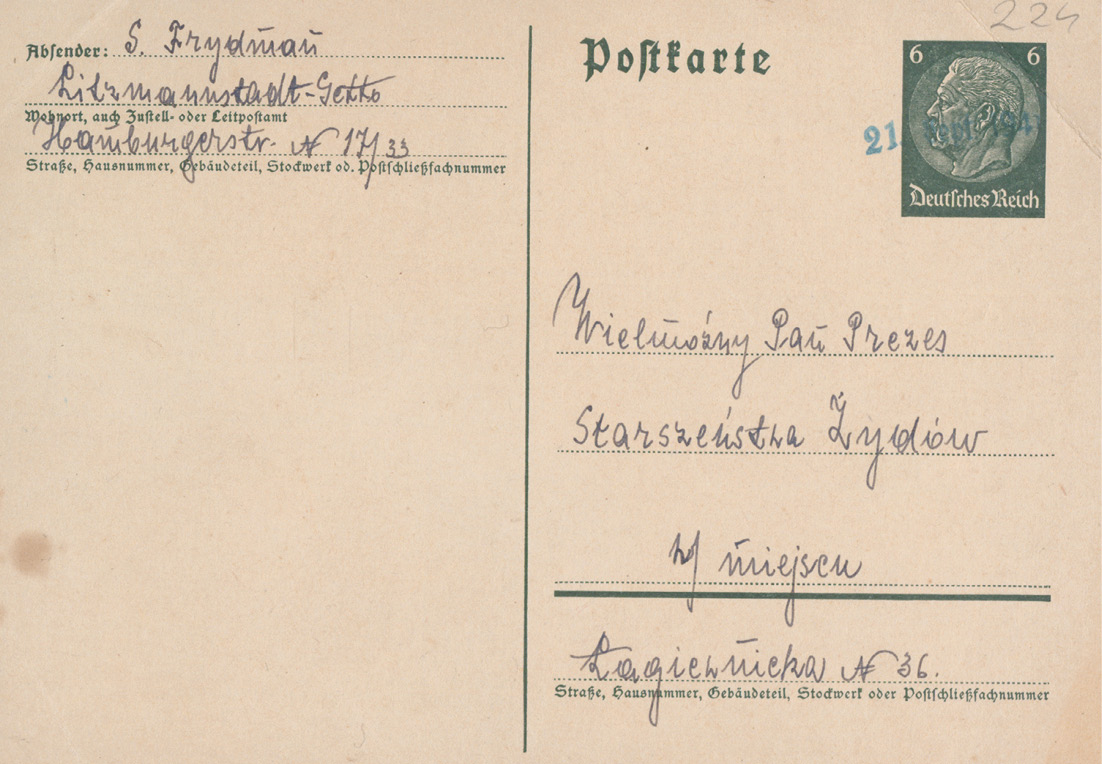 224
Absender: S. Frydman
Litzmannstadt-Getto
Wohnort, auch Zustell- oder Leitpostamt
Hamburgerstr. N 17/33
Straße, Hausnummer, Gebäudeteil, Stockwerk od. Postschließfachnummer
Postkarte
6 6
21.
Deutsches Reich
Wielmożny Pan Prezes
Starszeństwa Żydów
w/ miejscu
Łagiewnicka N 36.
Straße, Hausnummer, Gebäudeteil, Stockwerk oder Postschließfachnummer